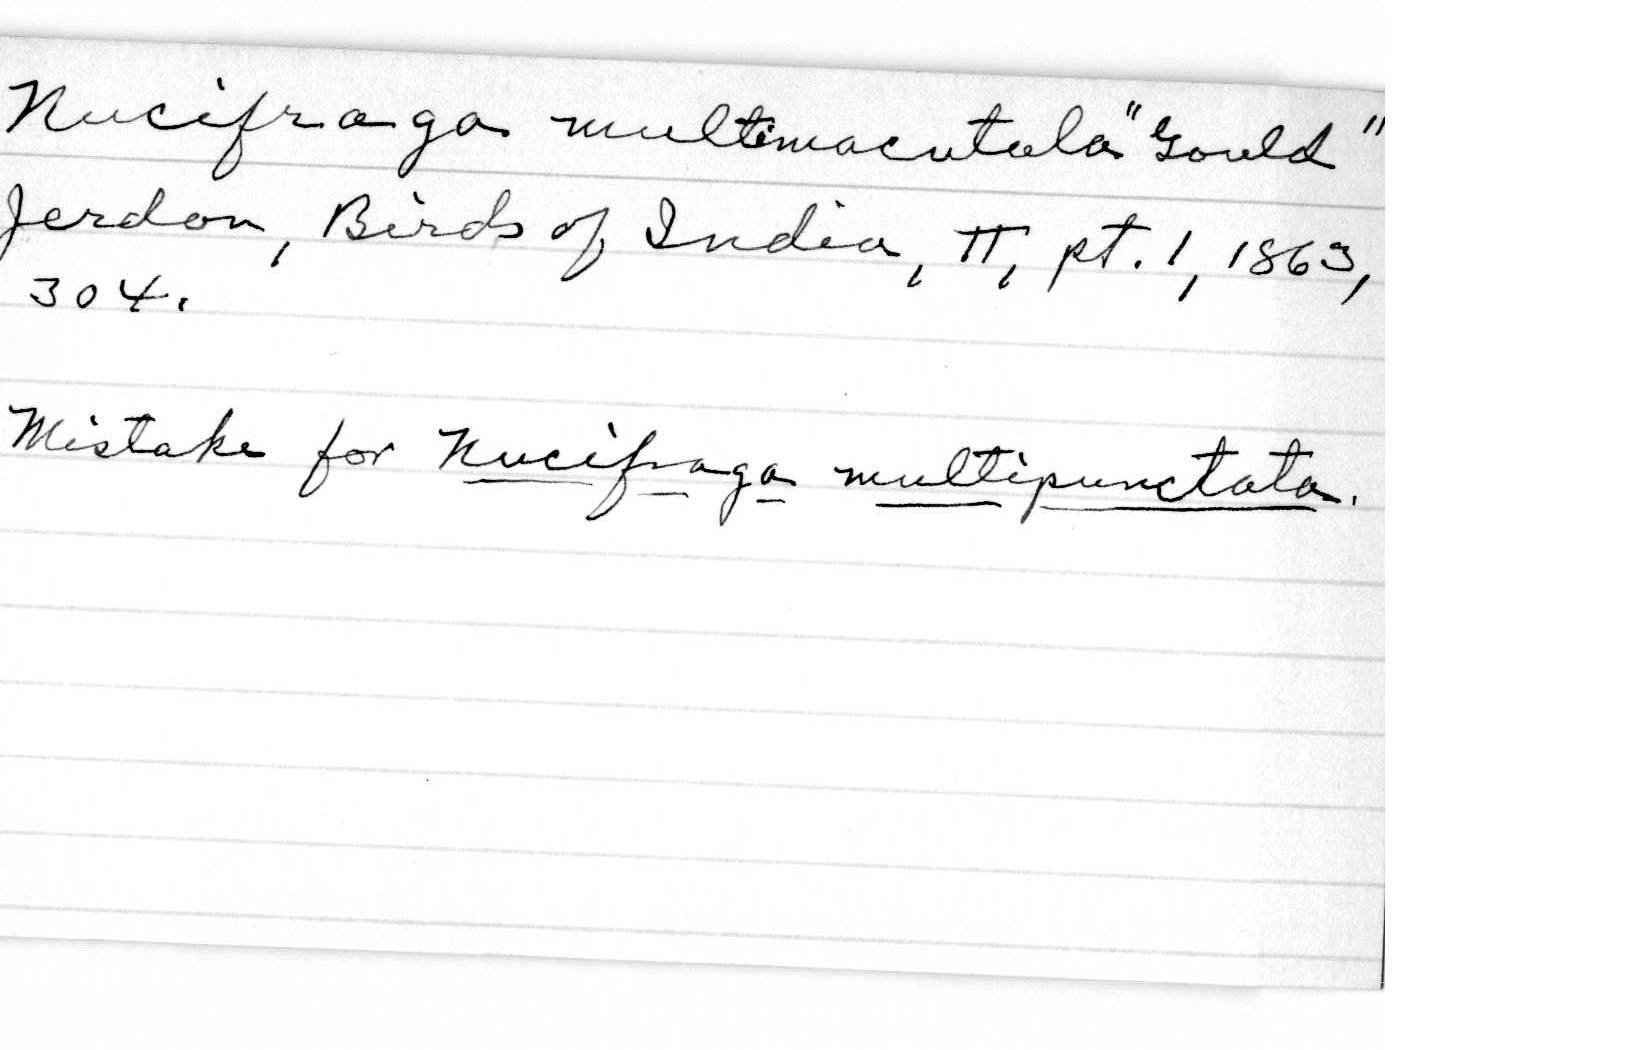 Nucifraga multimaculata "Gould"
Jerdon, Birds of India, II, pt. 1, 1863,
304.
Mistake for Nucifraga multipunctata.